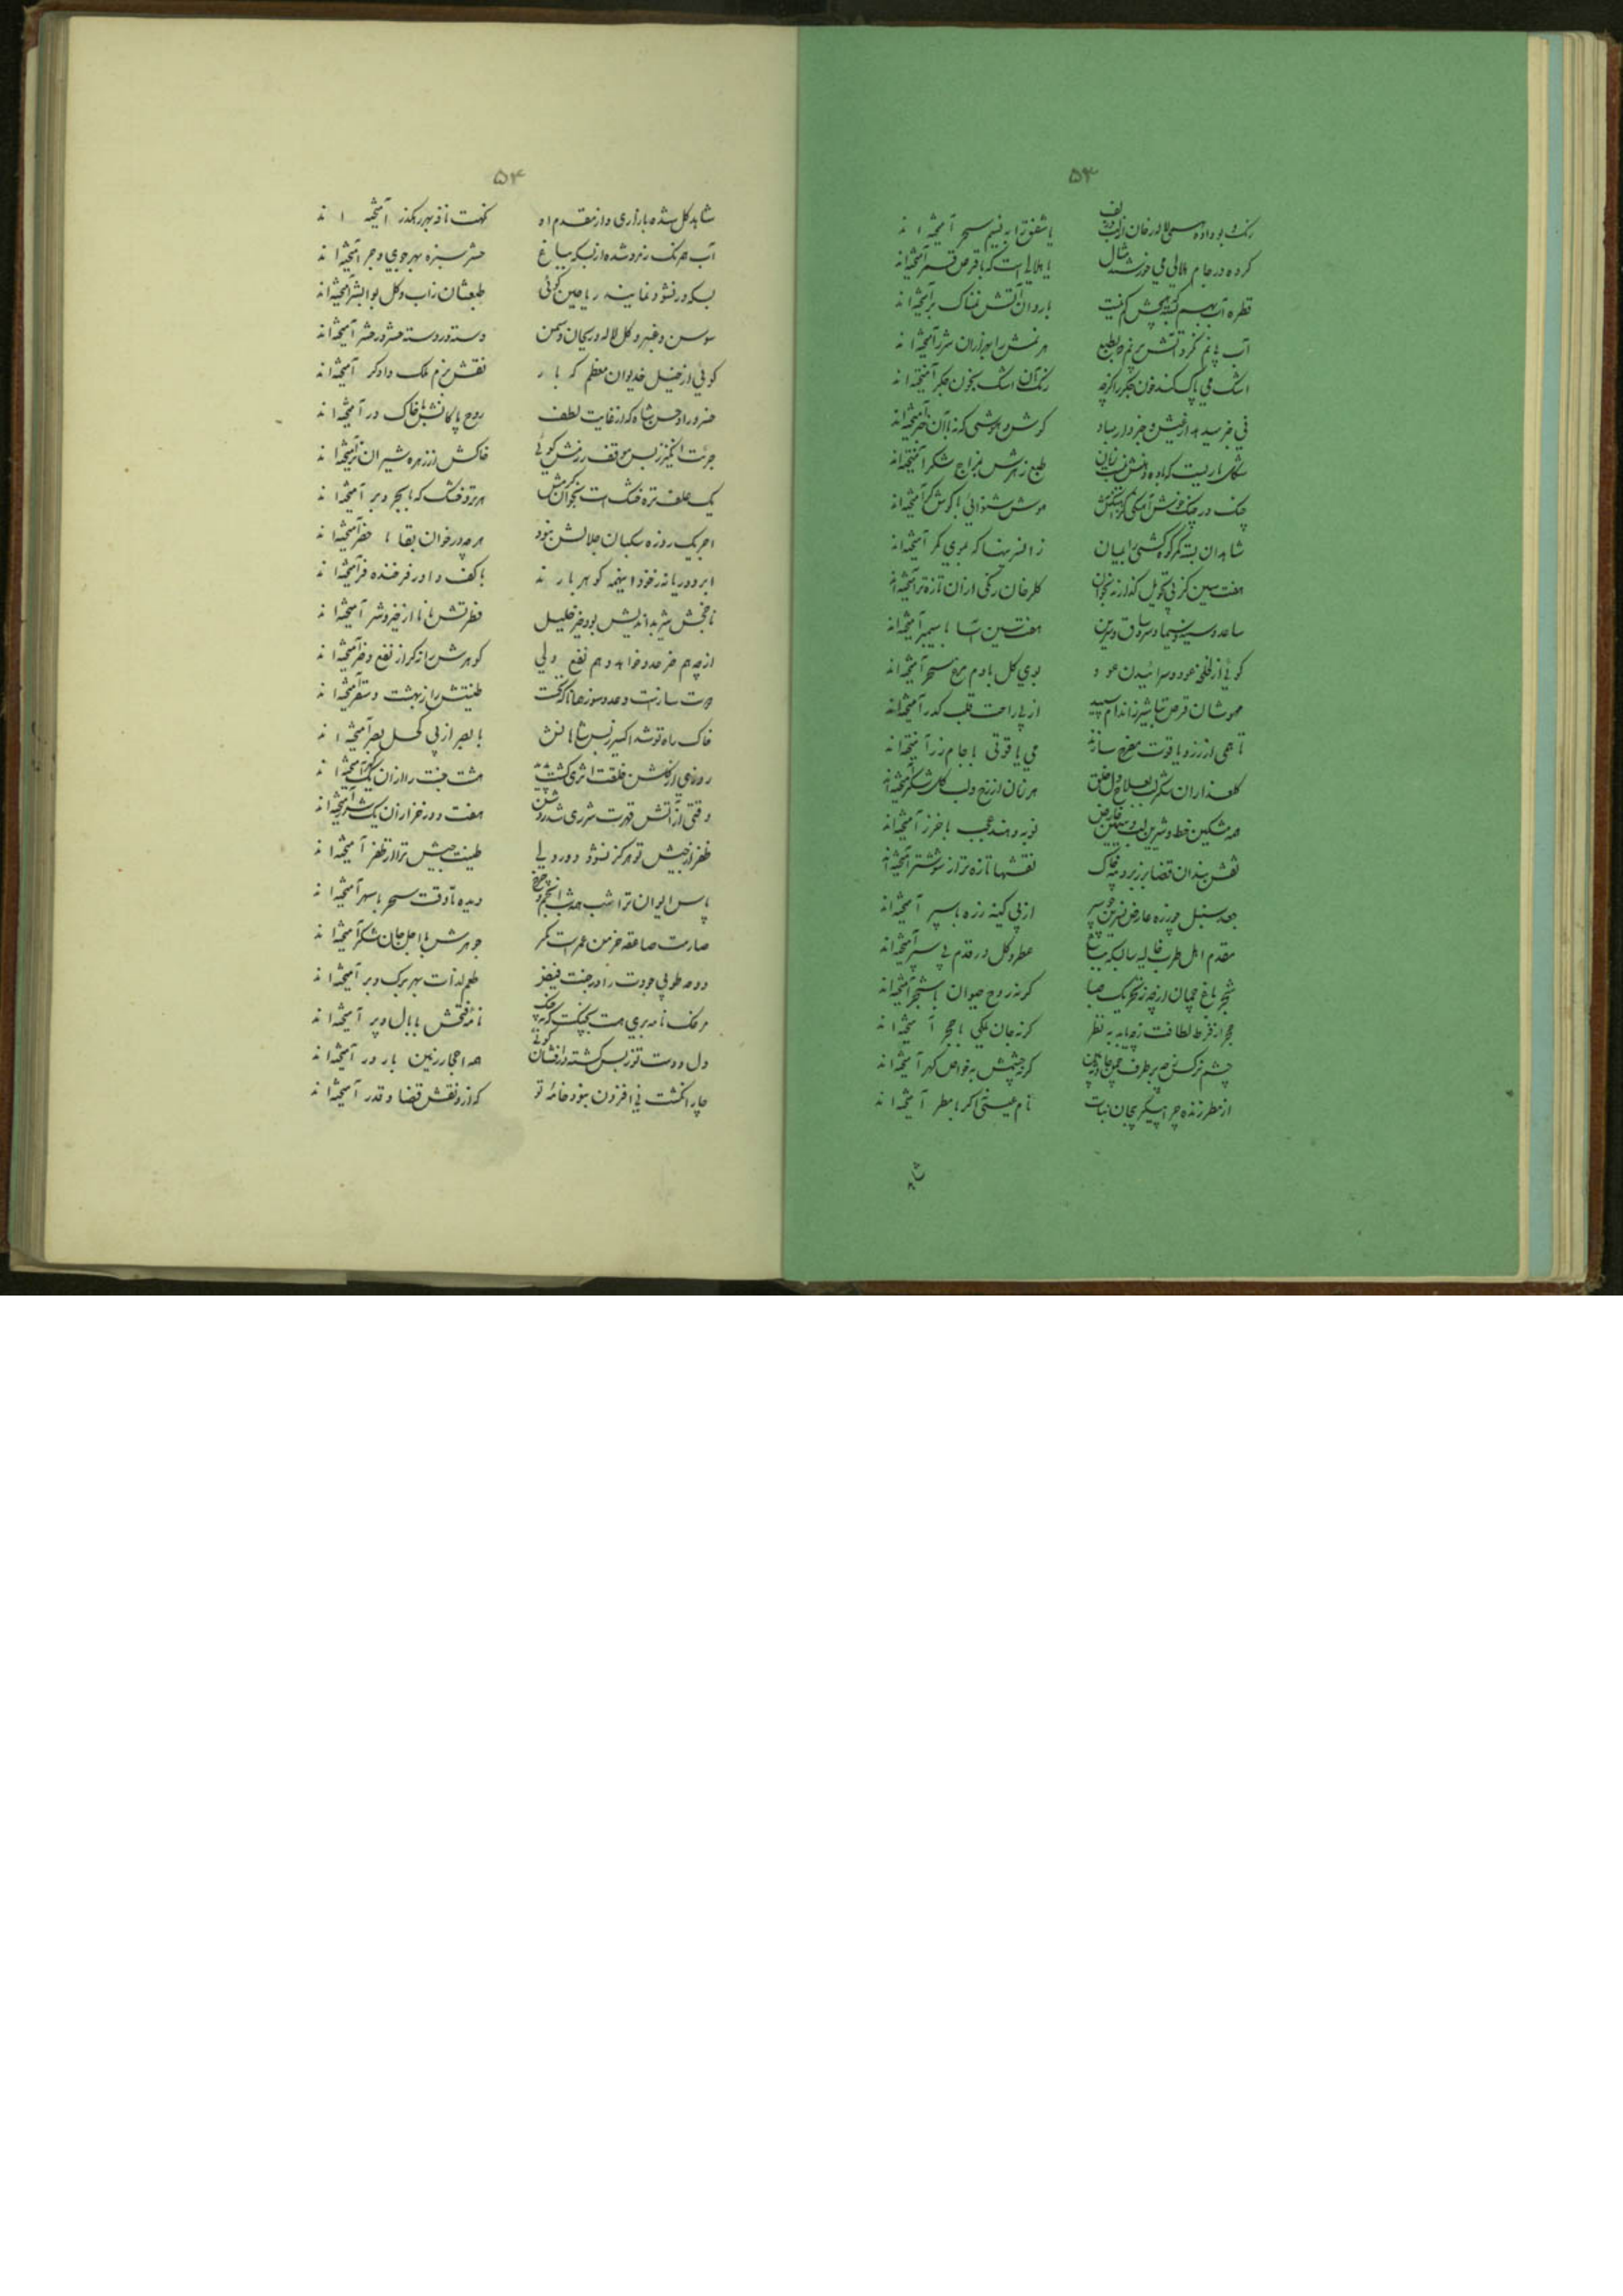 ۵۳
رنک و بو داده می لاله رخان را
یا شفق را به نسیم سحر آمیخته اند
کرده در جام هلالی می خورشید مثال
یا هلالی است که با قرص قمر آمیخته اند
قطره آب
با روان آتش نمناک بر آمیخته اند
آب با نم نکرد آتش بر نم بطبع
هر نمش را بهزاران شرر آمیخته اند
اشک می پاک کند خون جکر را کرچه
رنک آن اشک بخون جکر آمیخته اند
کوش و هوشی که نه با آن خبر آمیخته اند
طبع زهرش بمزاج شکر آمیخته اند
چنک در چنک خوش آهنکی
هوش شنوائی با کوش کر آمیخته اند
شاهدان بسته کمر کوه کشی را بمیان
زان سرینها که بموی کمر آمیخته اند
هفت سین کز پی تحویل کذارند بخوان
کلرخان رنکی از آن تازه تر آمیخته اند
ساعد و سینه و سیما و سر و ساق و سرین
هفت سین است با سیمبر آمیخته اند
کوئی از نفخه عود و سرائیدن عود
بوی کل با دم مرغ سحر آمیخته اند
مهوشان قرص تباشیر ز اندام سپید
از پی راحت قلب کدر آمیخته اند
تا همی از زر و یاقوت مفرح سازند
می یاقوتی با جام زر آمیخته اند
کلعذاران شکر لب بعلاج دل خلق
هر زمان از رخ و لب کلشکر آمیخته اند
همه مشکین خط و شیرین لب و سیمین عارض
نوبه و هند عجب با خزر آمیخته اند
نقش بندان قضا بر زبر دیبه خاک
نقشها تازه تر از شوشتر آمیخته اند
جعد سنبل چو زره عارض نسرین چو سپر
از پی کینه زره با سپر آمیخته اند
مقدم اهل طرب غالیه سا بسکه بباغ
عطر و کل در قدم پی سپر آمیخته اند
شجر باغ چمان از چه ز تحریک صبا
کرنه روح حیوان با شجر آمیخته اند
حجر از فرط لطافت ز چه پاید به نظر
کرنه جان ملکی با حجر آمیخته اند
چشم نرکس
کرنه چشمش بخواص کهر آمیخته اند
از مطر زنده چرا پیکر بیجان نبات
نام عیسی اکر با مطر آمیخته اند
۵۴
شاهد کل شده بازاری و از مقدم او
نکهت نافه بهر رهکذر آمیخته اند
آب همرنک زمرد شده از بسکه بباغ
حشر سبزه بهر جوی و جر آمیخته اند
بسکه در نشو و نمایند ریاحین کوئی
طبعشان ز آب و کل بوالبشر آمیخته اند
سوسن و عنبر و کل لاله و ریحان و سمن
دسته در دسته حشر در حشر آمیخته اند
کوئی از خیل خدیوان معظم کهبار
نقش بزم ملک دادکر آمیخته اند
خسرو راد حسن شاه که از غایت لطف
روح پاکانش با خاک در آمیخته اند
جرئت انکیز ز بس موقف رزمش کوئی
خاکش از زهره شیران نر آمیخته اند
یک علف تره خشک است بخوان کرمش
هر تر و خشک که با بحر و بر آمیخته اند
اجر یک روزه سکبان جلالش نبود
هر چه در خوان بقا با خضر آمیخته اند
ابر و دریا نه ز خود اینهمه کوهر بارند
با کف داور فرخنده فر آمیخته اند
فطرتش نا از خیر و شر آمیخته اند
از چه هم ضر عدو خواهد و هم نفع ولی
کوهرش را نه کر از نفع و ضر آمیخته اند
دوست سازست و عدو سوز همانا که نخست
طینتش را ز بهشت و سقر آمیخته اند
خاک راه تو شد اکسیر ز بس شاهانش
با بصر از پی کحل بصر آمیخته اند
روزی از کلشن خلقت اثری کشت
هشت جنت را از آن یک اثر آمیخته اند
وقتی از آتش قهرت شرری شد روشن
هفت دوزخ را از آن یک شرر آمیخته اند
ظفر از جیش تو هرکز نشود دور ولی
طینت جیش ترا از ظفر آمیخته اند
پاس ایوان ترا شب همه شب انجم چرخ
دیده تا وقت سحر با سهر آمیخته اند
صارمت صاعقه خرمن عمرست مکر
جوهرش با اجل جان شکر آمیخته اند
دوحه طوبی جودت را در جنت فیض
طعم لذات بهر برک و بر آمیخته اند
مرغک نامه بری هست بچنکت که
نامه فتحش با بال و پر آمیخته اند
دل و دست تو ز بس کشته در افشان کوئی
همه احجار زمین با درر آمیخته اند
چار انکشت نی افزون نبود خامه تو
که ازو نقش قضا و قدر آمیخته اند